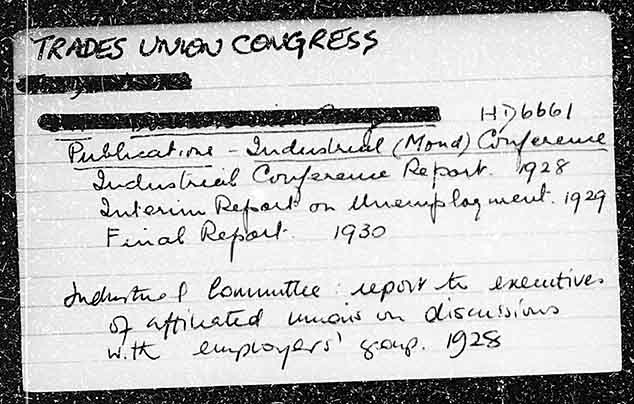 TRADES UNION CONGRESS
HD6661
Publications - Industrial (Mond) Conference
Industrial Conference Report. 1928
Interim Report on Unemployment. 1929
Final Report. 1930
Industrial Committee: report to executives
of affiliated unions on discussions
with employers' group. 1928